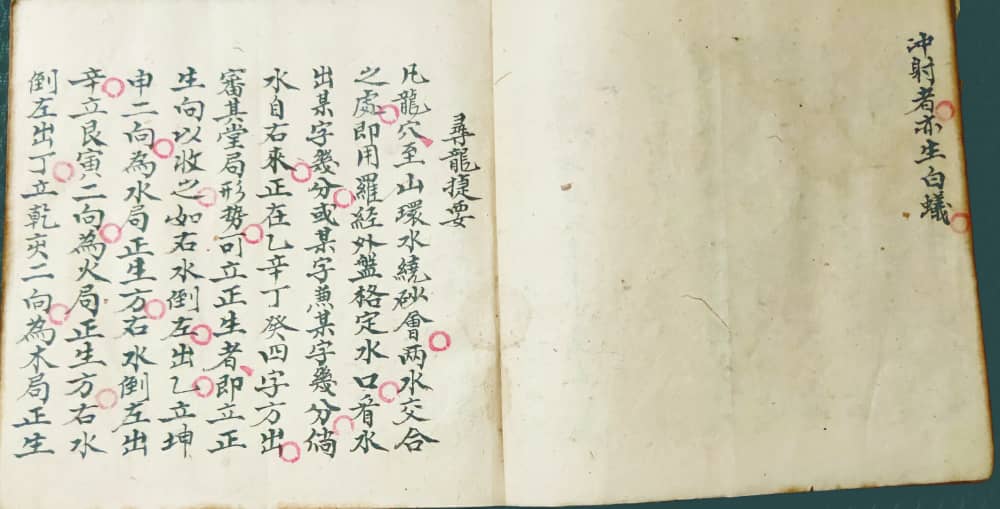 冲射者亦生白蟻
尋龍捷要
凡龍穴至山環水繞砂會兩水交合
之處即用羅經外盤格定水口看水
出某字幾分或某字兼某字幾分倘
水自右來正在乙辛丁癸四字方出
審其堂局形勢可立正生者即立正
生向以收之如右水倒左出乙立坤
申二向為水局正生方右水倒左出
辛立艮寅二向為火局正生方右水
倒左出丁立乾亥二向為木局正生